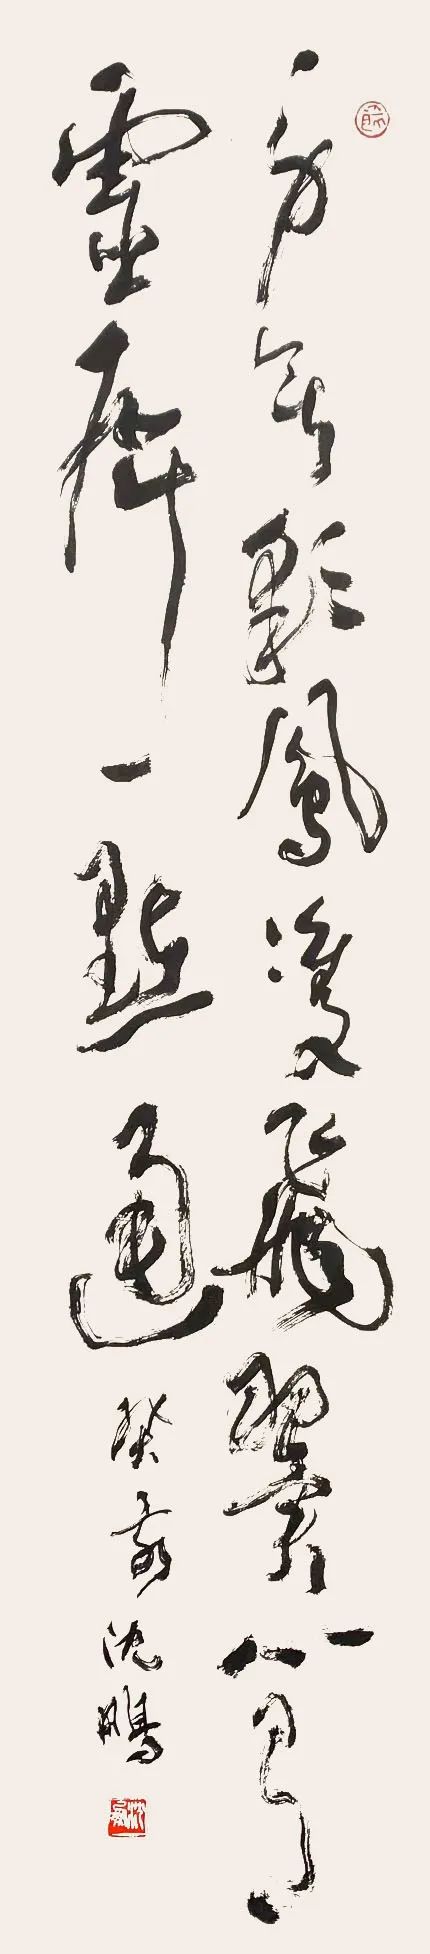 身無彩鳳雙飛翼心有
靈犀一點通 癸亥 沈鵬